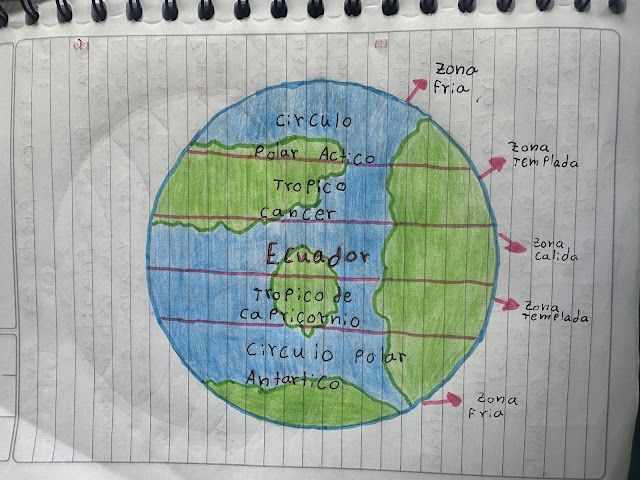 Zona
fria
circulo
Polar Actico
Tropico
cancer
Ecuador
Tropico de
capricornio
circulo polar
Antartico
Zona
Templada
Zona
Calida
Zona
Templada
Zona
fria